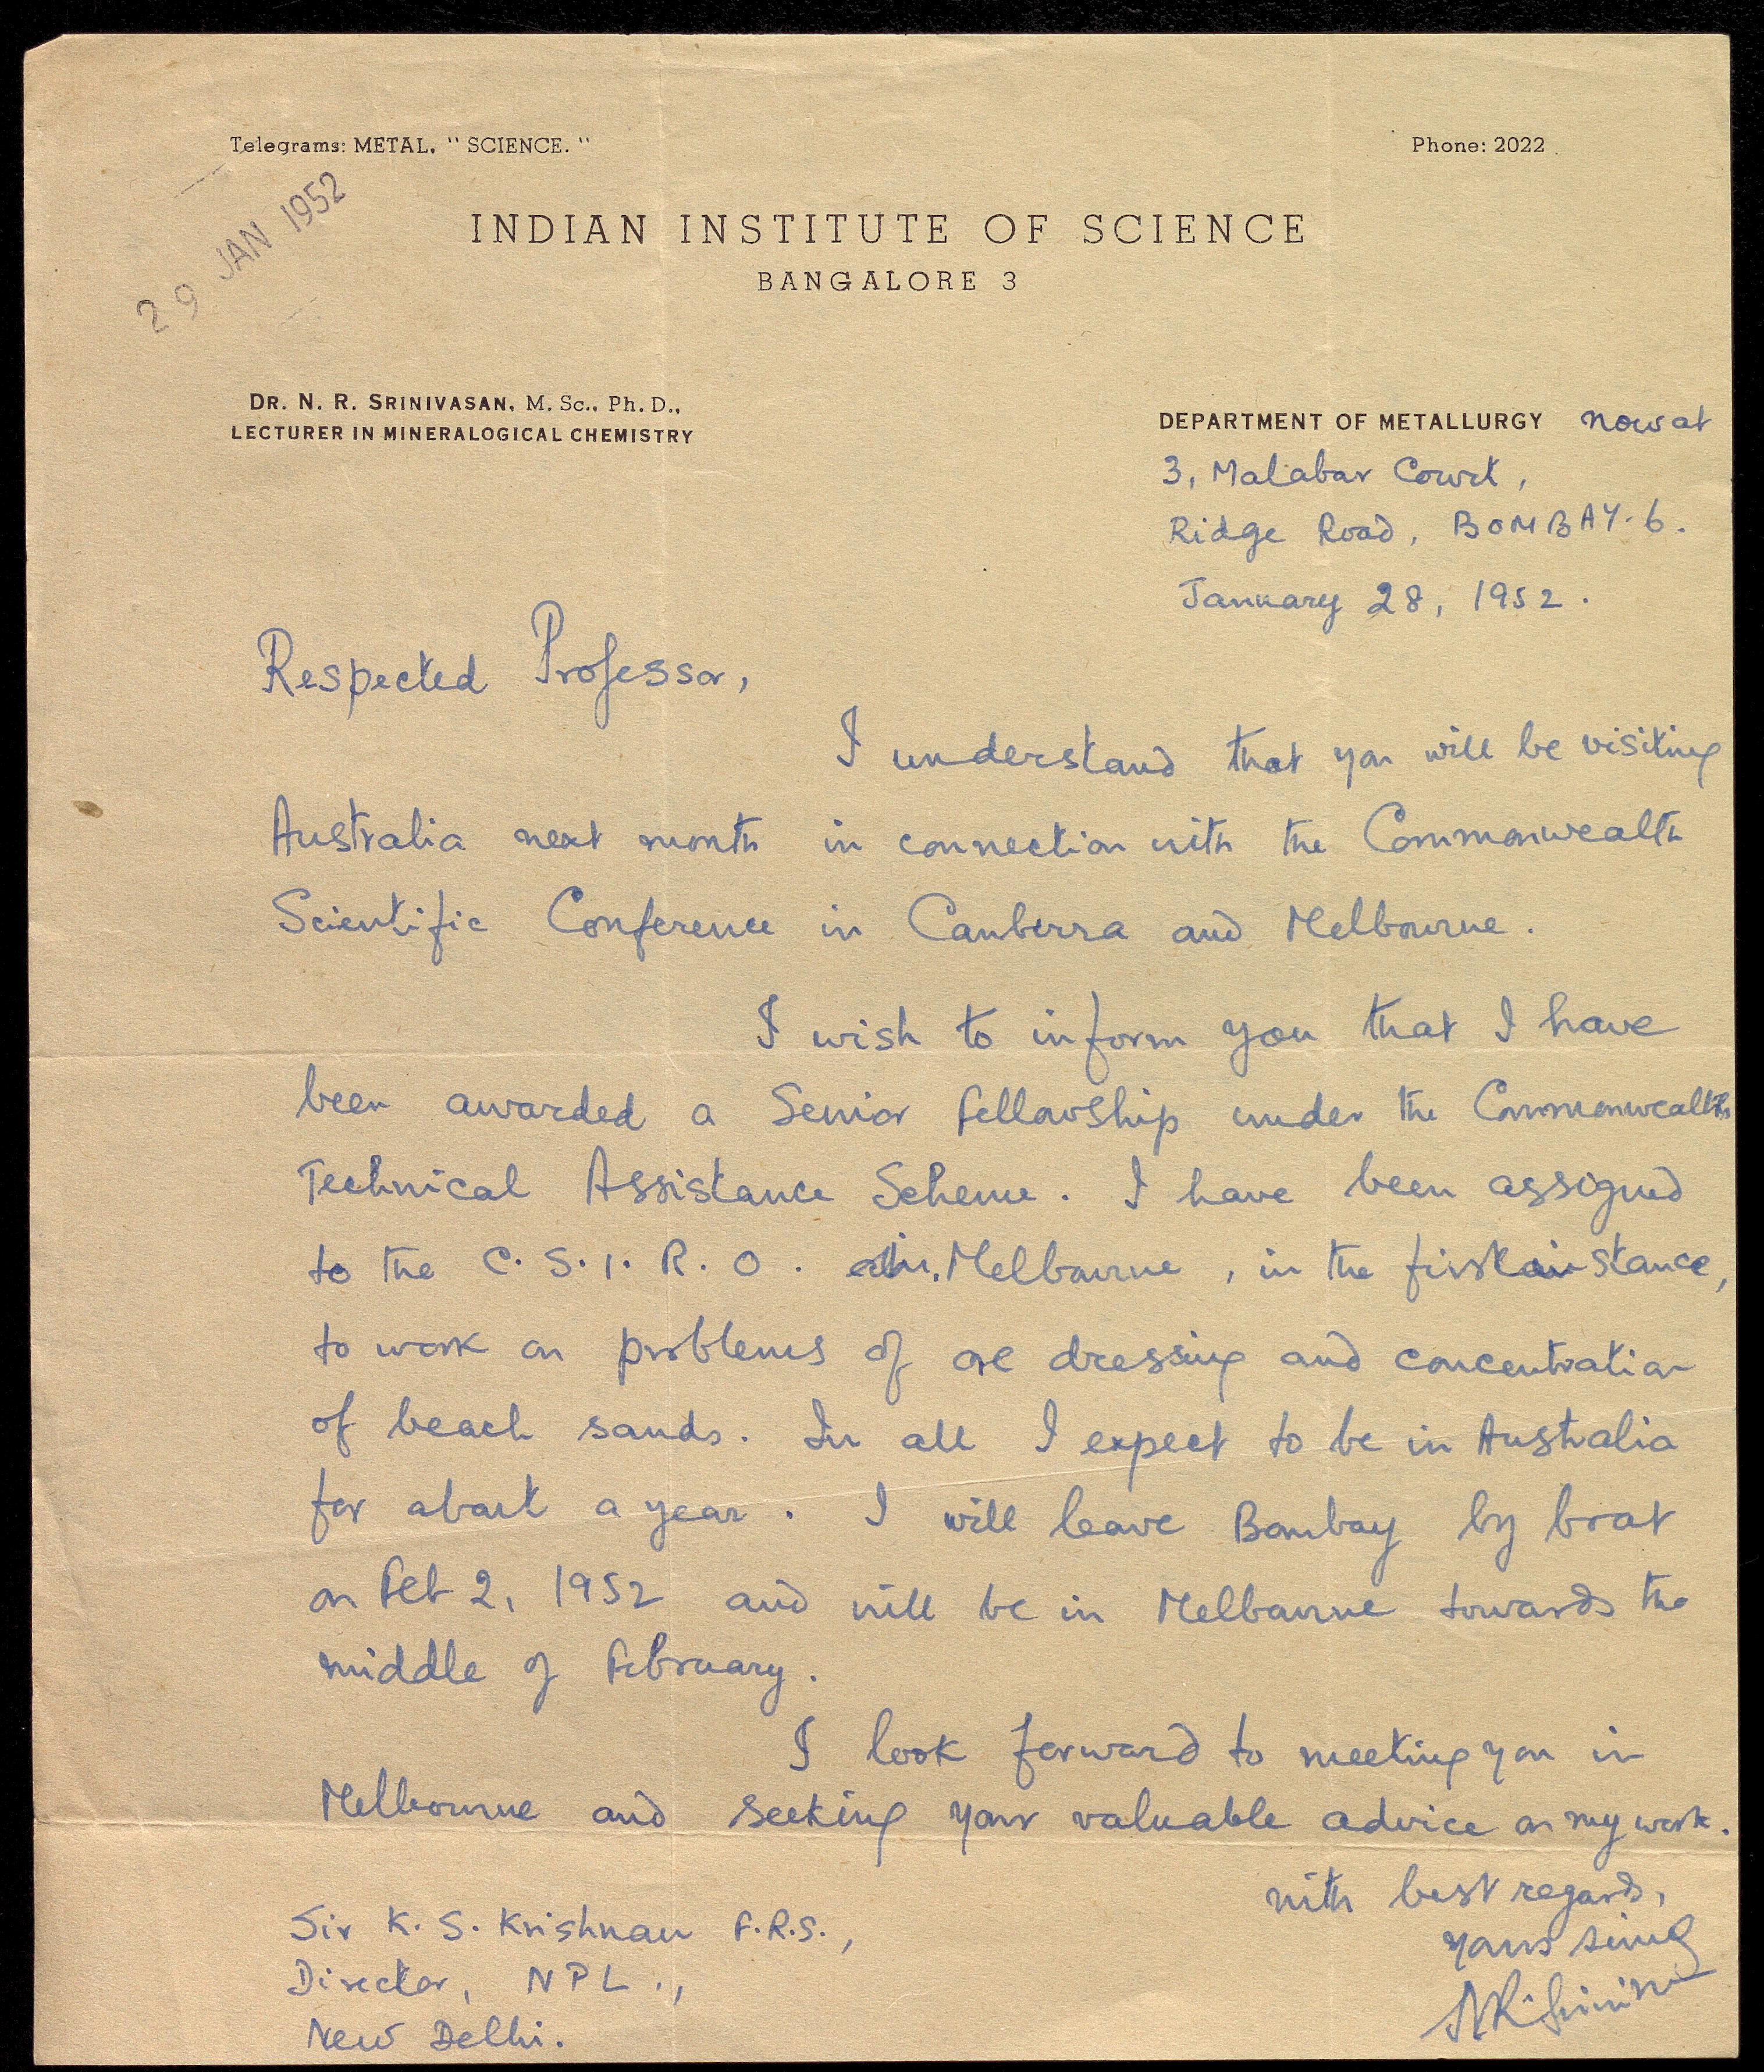 Telegrams: METAL, "SCIENCE."
Phone: 2022
29 JAN 1952
INDIAN INSTITUTE OF SCIENCE
BANGALORE 3
DR. N. R. SRINIVASAN, M. Sc., Ph. D.,
LECTURER IN MINERALOGICAL CHEMISTRY
DEPARTMENT OF METALLURGY now at
3, Malabar Court,
Ridge Road, BOMBAY-6.
January 28, 1952.
Respected Professor,
I understand that you will be visiting
Australia next month in connection with the Commonwealth
Scientific Conference in Canberra and Melbourne.
I wish to inform you that I have
been awarded a Senior fellowship under the Commonwealth
Technical Assistance Scheme. I have been assigned
to the C.S.I.R.O. in Melbourne, in the first instance,
to work on problems of ore dressing and concentration
of beach sands. In all I expect to be in Australia
for about a year. I will leave Bombay by boat
on Feb 2, 1952 and will be in Melbourne towards the
middle of February.
I look forward to meeting you in
Melbourne and seeking your valuable advice on my work.
with best regards,
yours sincly
NRSrinivasan
Sir K. S. Krishnan F.R.S.,
Director, NPL.,
New Delhi.